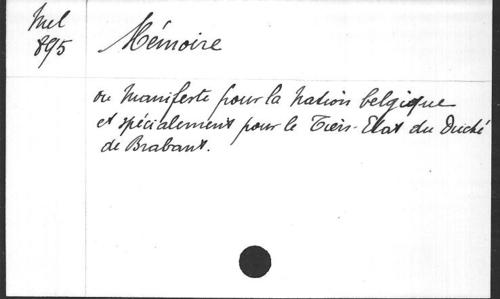 Mel
895
Mémoire
ou Manifeste pour la Nation belgique
et spécialement pour le Tiers-Etat du Duché
de Brabant.